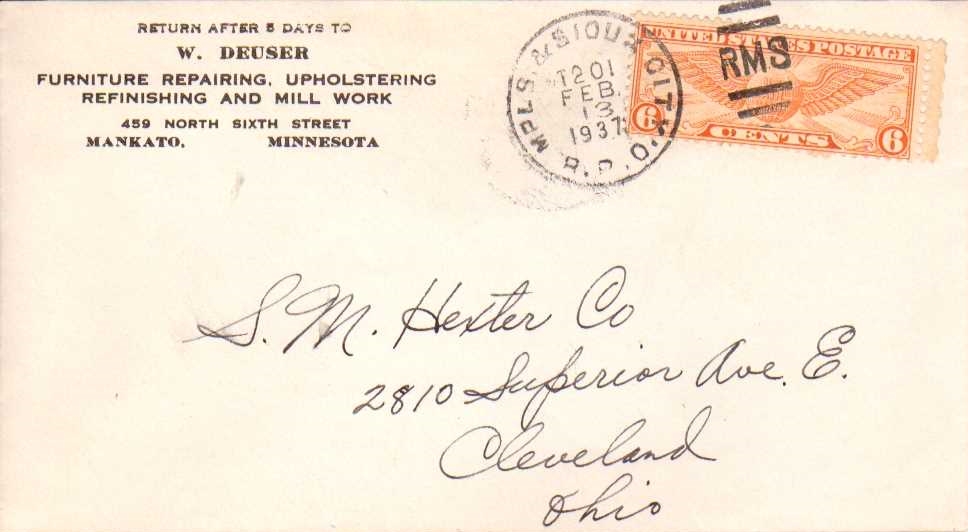 RETURN AFTER 5 DAYS TO
W. DEUSER
FURNITURE REPAIRING, UPHOLSTERING
REFINISHING AND MILL WORK
459 NORTH SIXTH STREET
MANKATO, MINNESOTA
MPLS. & SIOUX CITY.
T201
FEB
13
1937
R.P.O.
RMS
UNITED STATES POSTAGE
6 CENTS 6
S. M. Hexter Co
2810 Superior Ave. E.
Cleveland
Ohio